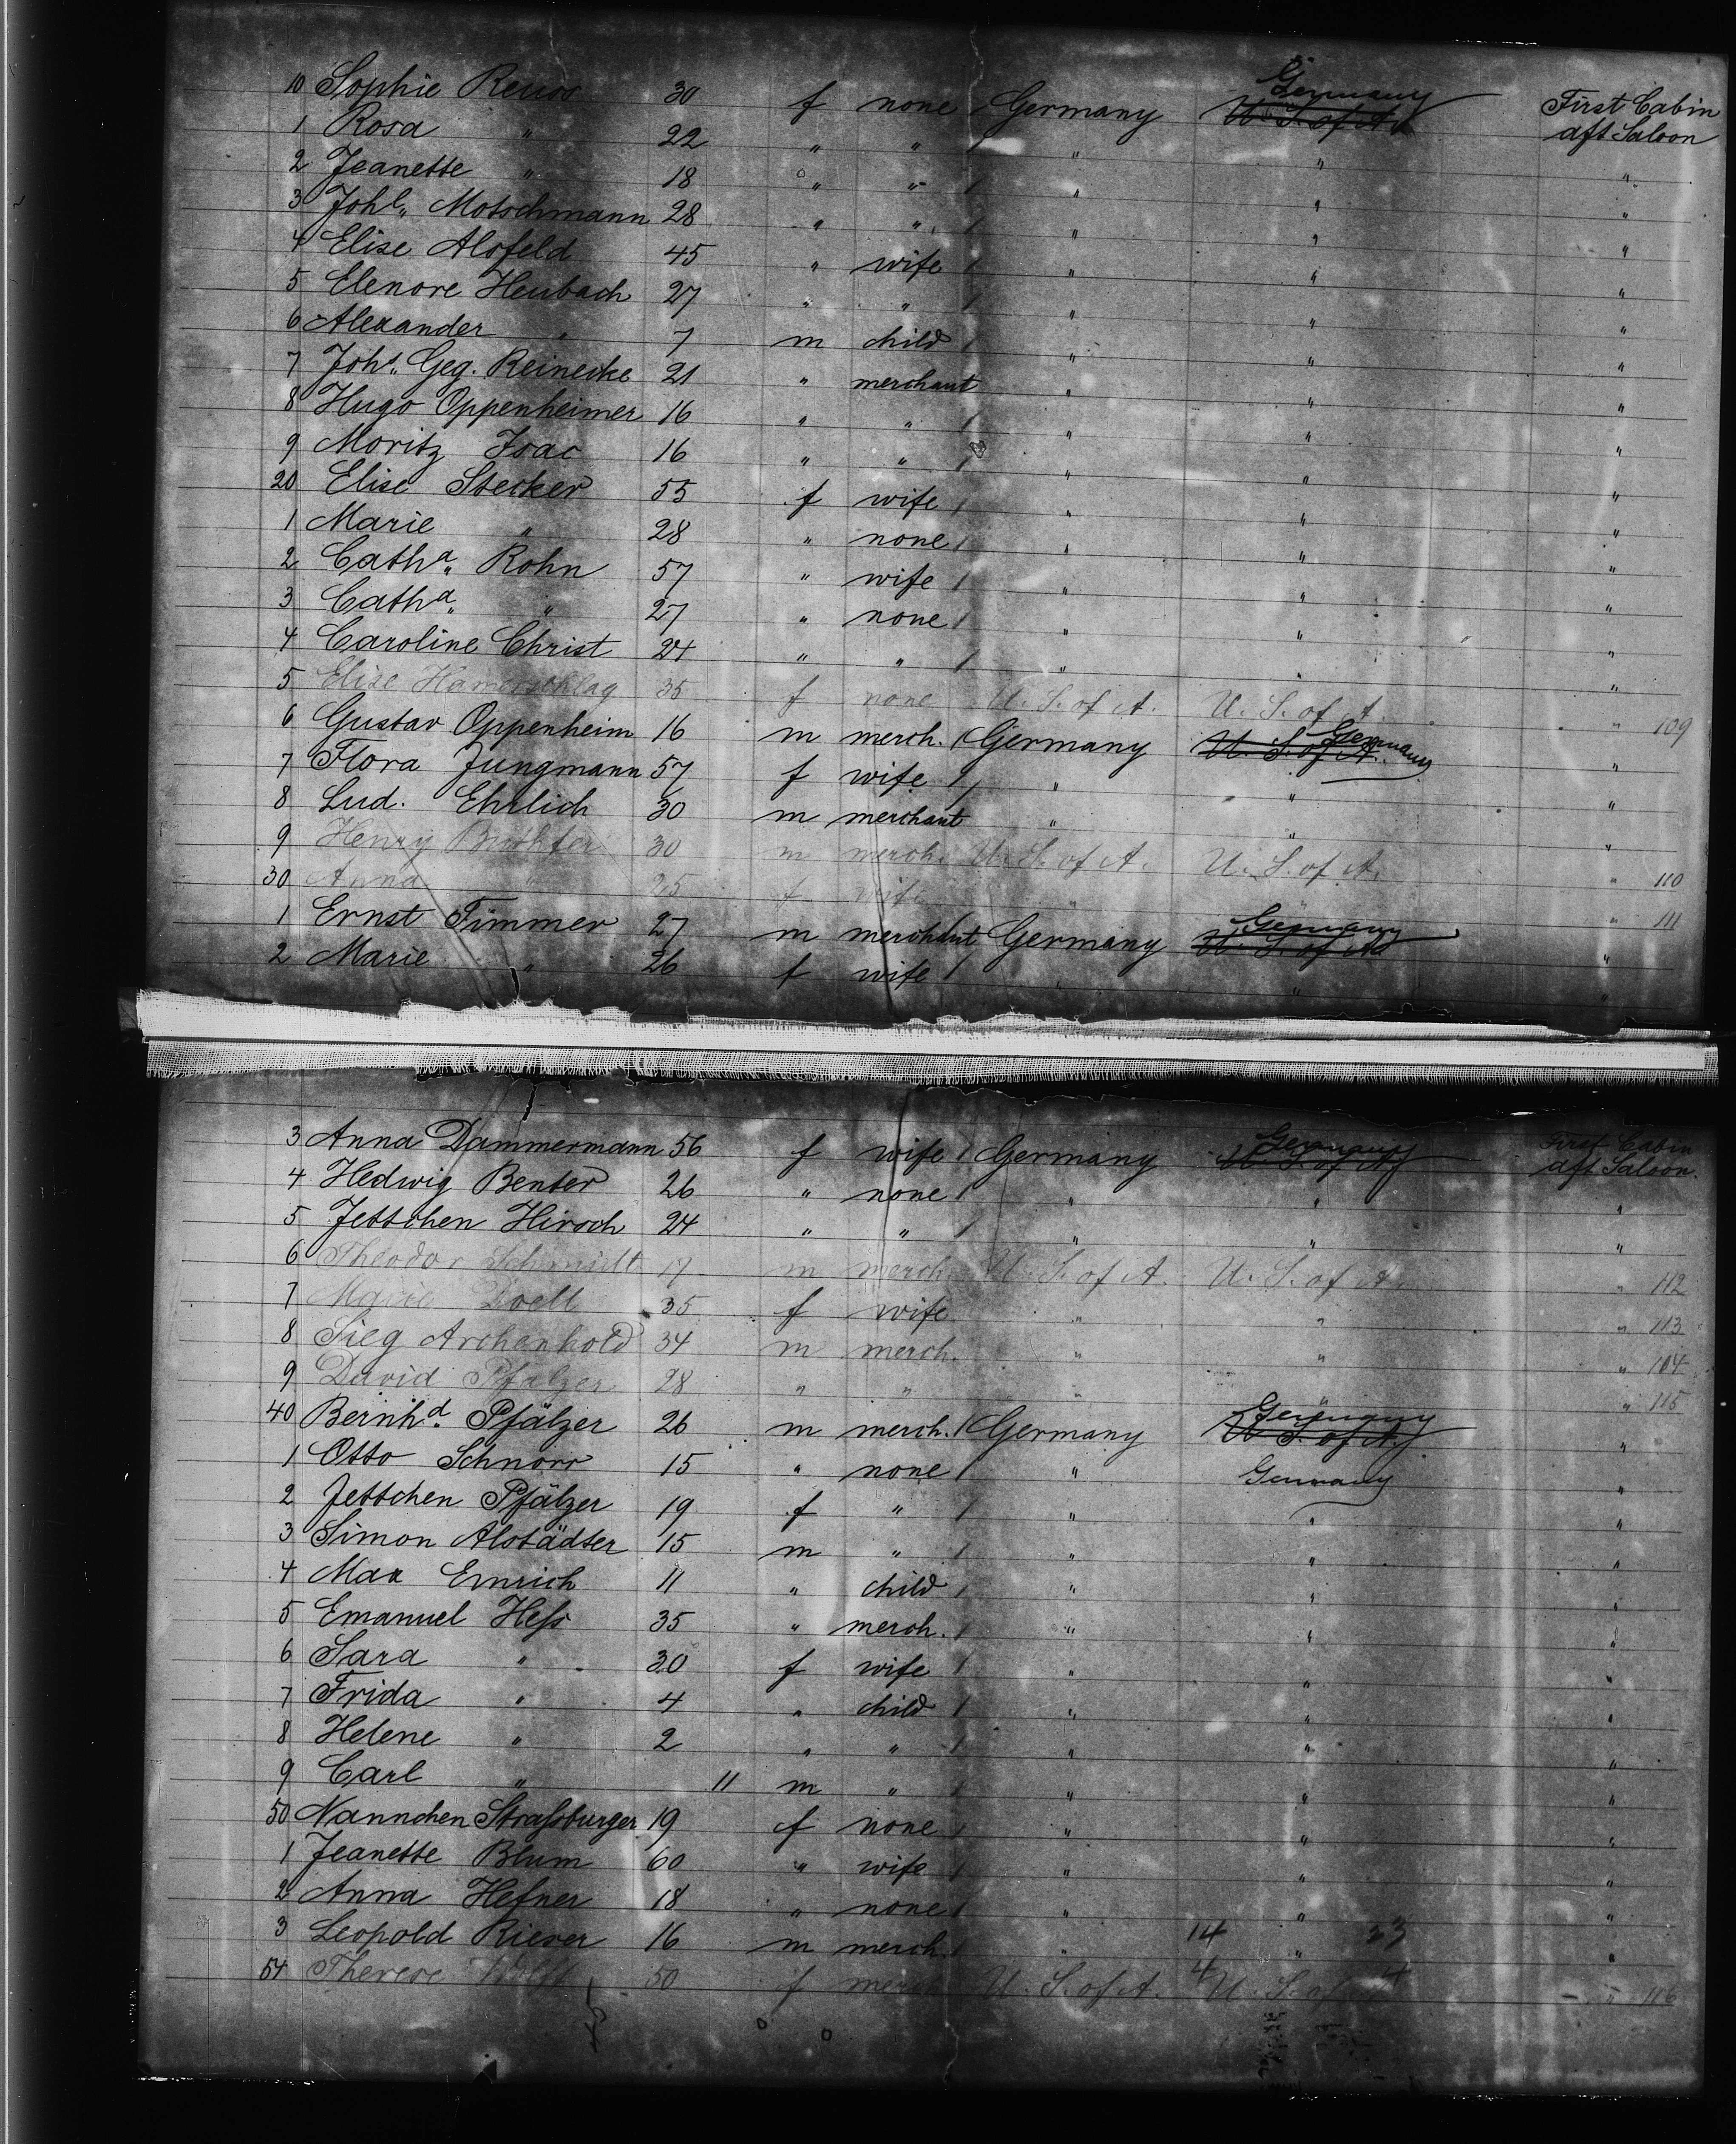 10 Sophie Reuss 30 f none Germany Germany U. S. of A. First Cabin aft Saloon
1 Rosa " 22 " " / " " "
2 Jeanette " 18 " " / " " "
3 Joh[e]. Motschmann 28 " " / " " "
4 Elise Alsfeld 45 " wife / " " "
5 Elenore Heubach 27 " " / " " "
6 Alexander " 7 m child / " " "
7 Joh[s]. Geg. Reinecke 21 " merchant " " "
8 Hugo Oppenheimer 16 " " / " " "
9 Moritz Isac 16 " " / " " "
20 Elise Stecker 55 f wife / " " "
1 Marie " 28 " none / " " "
2 Cath[a]. Rohn 57 " wife / " " "
3 Cath[a]. " 27 " none / " " "
4 Caroline Christ 24 " " / " " "
5 Elise Hamerschlag 35 f none U. S. of A. U. S. of A. " 109
6 Gustav Oppenheim 16 m merch. / Germany Germany U. S. of A. "
7 Flora Jungmann 57 f wife / " " "
8 Lud. Ehrlich 30 m merchant " " "
9 Henry 30 m merch. U. S. of A. U. S. of A. " 110
30 Anna " 25 f wife " " " 111
1 Ernst Timmer 27 m merchant Germany Germany U. S. of A. "
2 Marie " 26 f wife / " " "
3 Anna Dammermann 56 f wife / Germany Germany U. S. of A. First Cabin aft Saloon.
4 Hedwig Benter 26 " none / " " "
5 Jettchen Hirsch 24 " " / " " "
6 Theodor Schmidt 17 m merch. U. S. of A. U. S. of A. " 112
7 Marie Doell 35 f wife " " " 113
8 Sieg Archenhold 34 m merch. " " " 114
9 David Pfälzer 28 " " " " " 115
40 Bernh[d]. Pfälzer 26 m merch. / Germany Germany U. S. of A. "
1 Otto Schnorr 15 " none / " Germany "
2 Jettchen Pfälzer 19 f " / " " "
3 Simon Alstädter 15 m " / " " "
4 Max Emrich 11 " child / " " "
5 Emanuel Heſs 35 " merch. / " " "
6 Sara " 30 f wife / " " "
7 Frida " 4 " child / " " "
8 Helene " 2 " " / " " "
9 Carl " 11 m " / " " "
50 Nannchen Straſsburger 19 f none / " " "
1 Jeanette Blum 60 " wife / " " "
2 Anna Hefner 18 " none / " " "
3 Leopold Riever 16 m merch. / " 14 " 23 "
54 Therese 50 f merch U. S. of A. 4 U. S. of 4 " 116